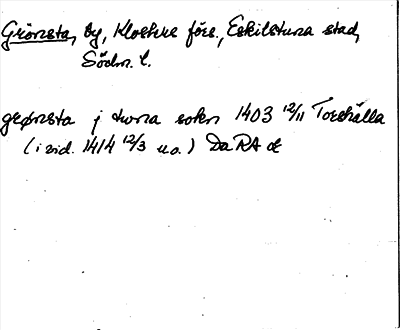 Grönsta, by, Klosters förs., Eskilstuna stad,
Södm. l.
grønsta j tuna sokn 1403 12/11 Torshälla
(i vid. 1414 12/3 u.o.) Da RA or